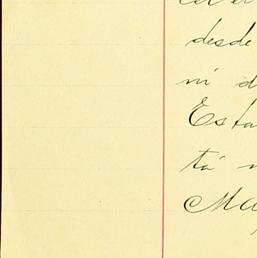 desde
ni d
Esta
tá n
Ma